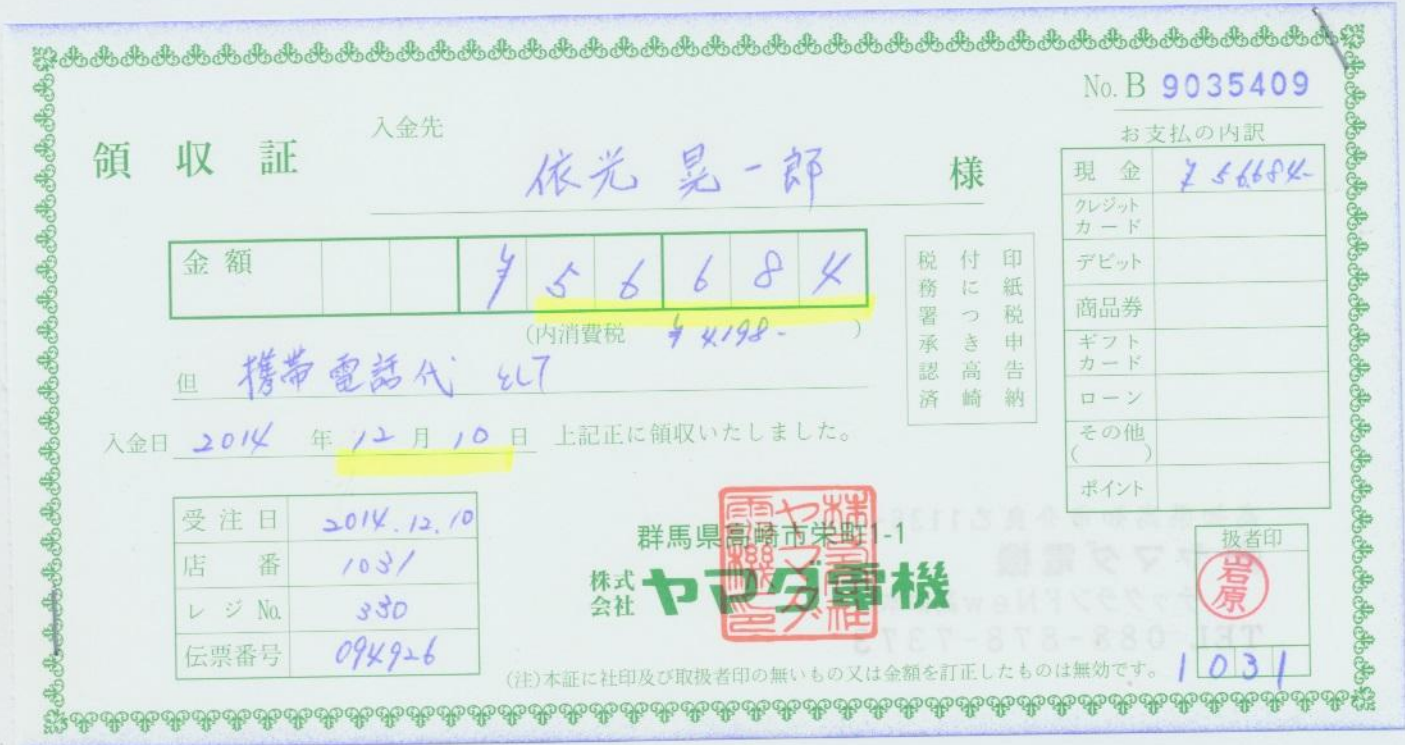 No. B 9035409
領収証
入金先
依光 晃一郎 様
金額 ¥56684
(内消費税 ¥4,198- )
但 携帯電話代 として
入金日 2014 年 12 月 10 日 上記正に領収いたしました。
印紙税申告納
付につき高崎
税務署承認済
お支払の内訳
現金 ¥56,684-
クレジットカード
デビット
商品券
ギフトカード
ローン
その他( )
ポイント
受注日 2014.12.10
店番 1031
レジNo. 330
伝票番号 094926
群馬県高崎市栄町1-1
株式会社 ヤマダ電機
株式会社ヤマダ電機之印
扱者印
岩原
1031
(注)本証に社印及び取扱者印の無いもの又は金額を訂正したものは無効です。
ヤマダ電機
TEL 088-878-7373